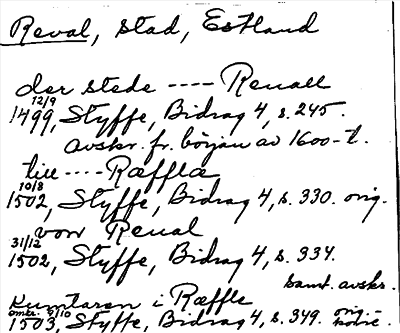 Reval, stad, Estland
der stede ---- Reuall
12/9
1499, Styffe, Bidrag 4, s. 245.
avskr. fr. början av 1600-t.
till ---- Ræfflæ
10/8
1502, Styffe, Bidrag 4, s. 330. orig.
von Reual
31/12
1502, Styffe, Bidrag 4, s. 334.
samt. avskr.
Kumtaren i Ræffle
omkr. 5/10 orig.-
1503, Styffe, Bidrag 4, s. 349.